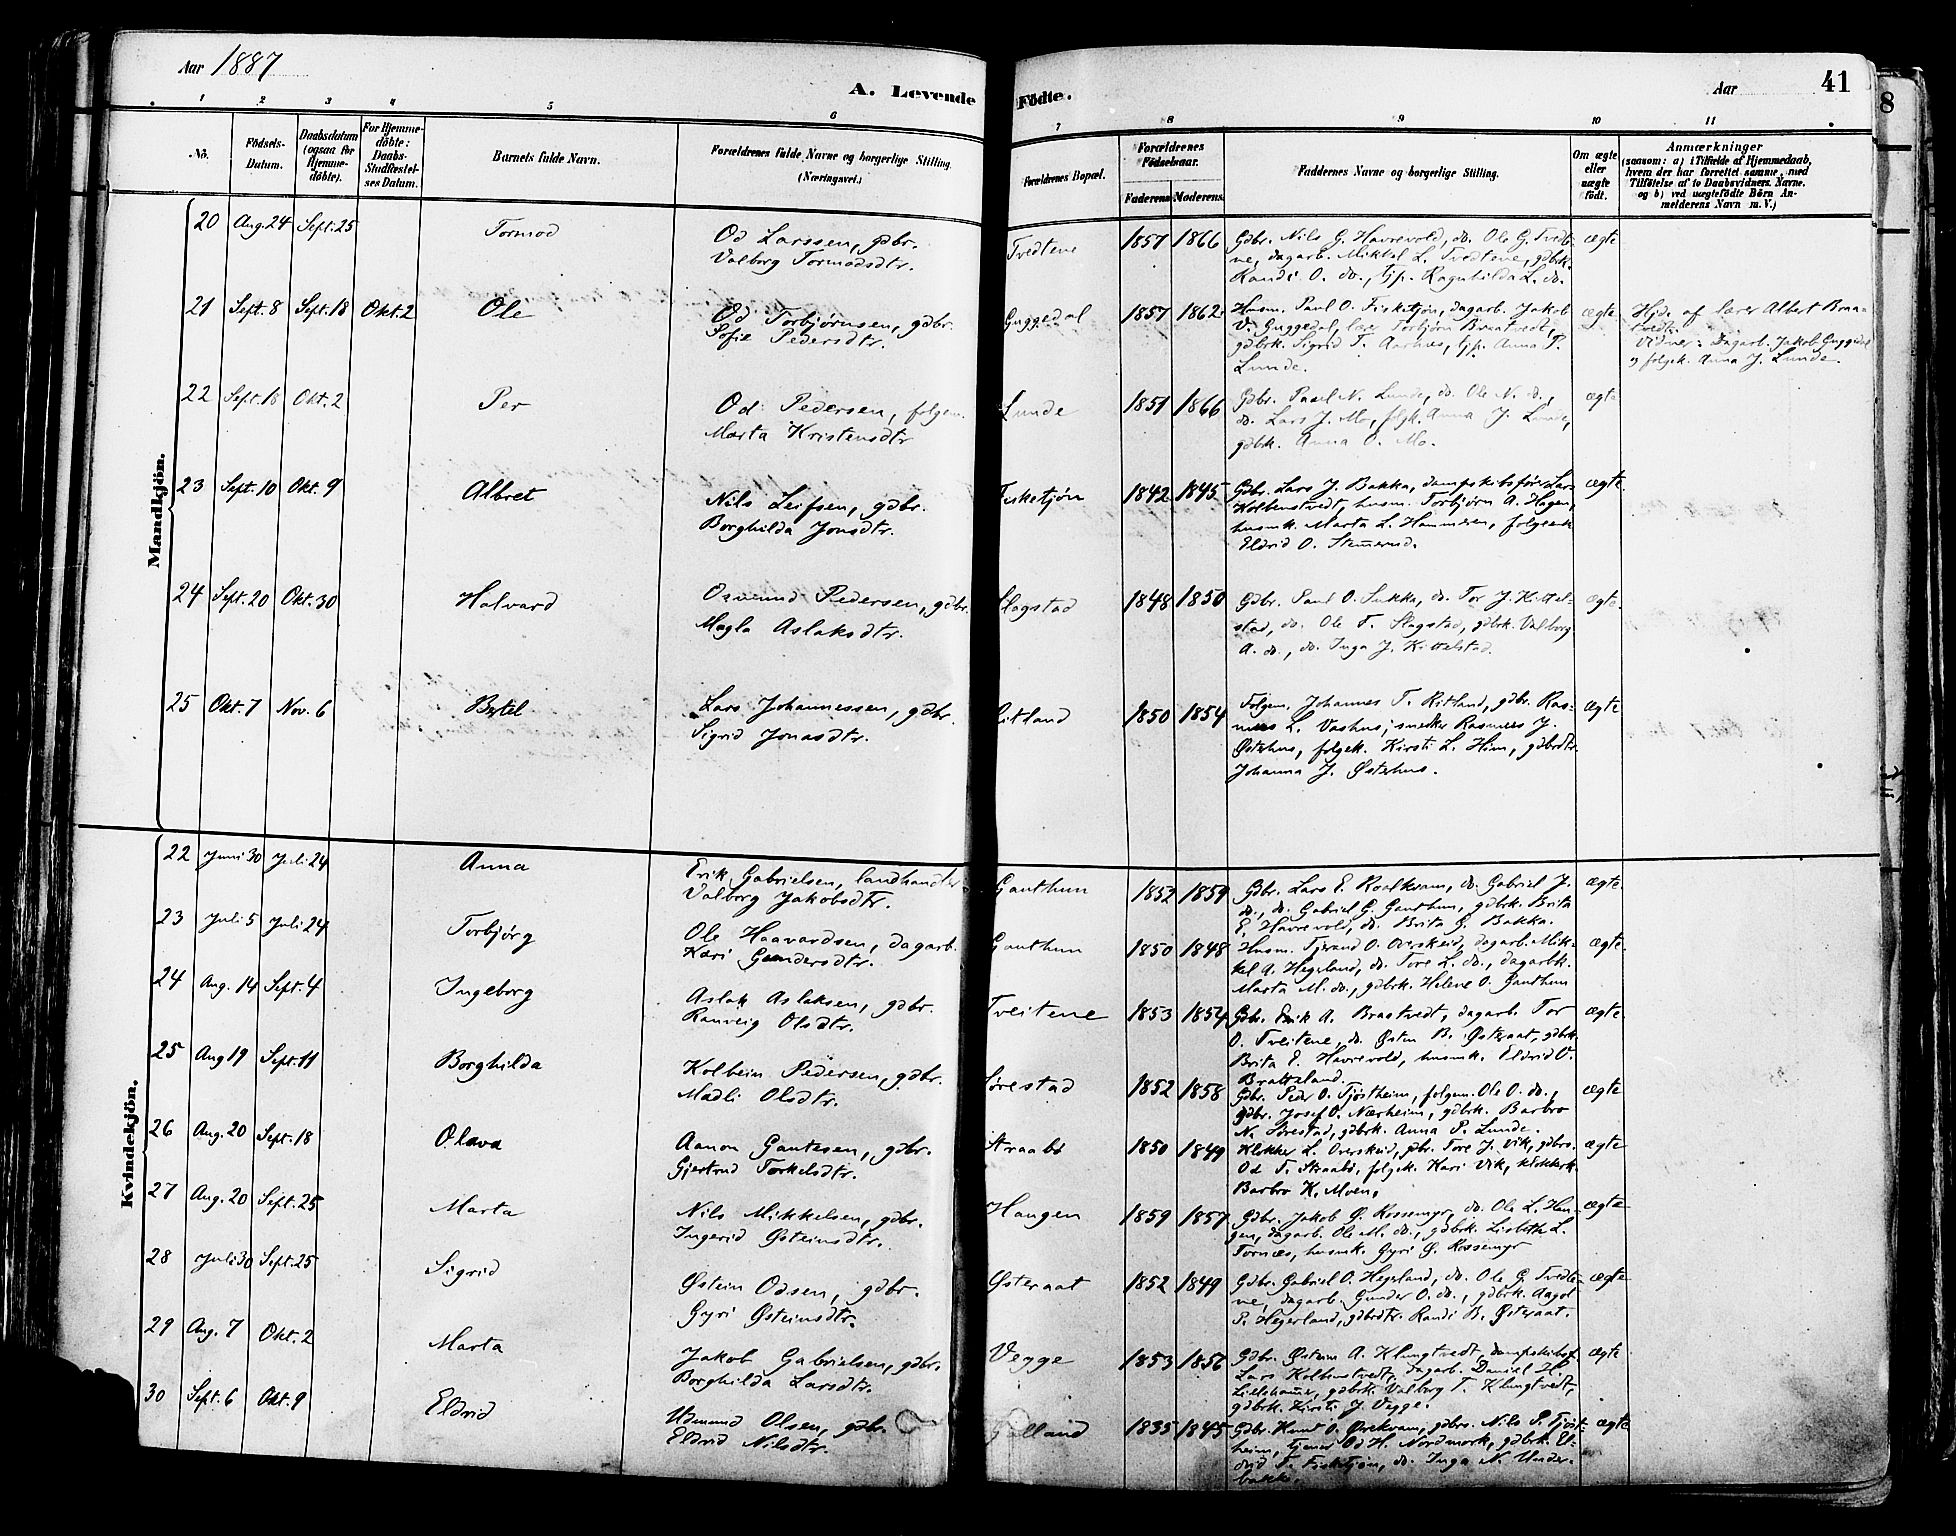 Aar 1887
A. Levende Födte.
Aar 41
8
1 2 3 4 5 6 7 8 9 10 11
No.
Födsels-Datum.
Daabsdatum (ogsaa for Hjemme-döbte).
For Hjemme-döbte: Daabs-Stadfæstel-ses Datum.
Barnets fulde Navn.
Forældrenes fulde Navne og borgerlige Stilling. (Næringsvei.)
Forældrenes Bopæl.
Forældrenes Födselsaar.
Faderens Moderens.
Faddernes Navne og borgerlige Stilling.
Om ægte eller uægte födt.
Anmærkninger
(saasom: a) i Tilfælde af Hjemmedaab,
hvem der har forrettet samme, med
Tilföielse af to Daabsvidners Navne.
og b) ved uægtefödte Börn An-
melderens Navn m. V.)
Mandkjön.
20 Aug. 24 Sept. 25 Tormod
Od Larssen, gdbr.
Valborg Tormodsdtr.
Tvedtene 1857 1866
Gdbr. Nils G. Havrevold, do. Ole G. Tvedte-
ne, dagarb. Mikkel L. Tvedtene, gdbrk.
Randi O. do., tjp. Ragnhilda L. do.
ægte
21 Sept. 8 Sept. 18 Okt. 2 Ole
Od Torbjørnsen, gdbr.
Sofie Pedersdtr.
Guggedal 1857 1862
Husm. Paul O. Fisketjøn, dagarb. Jakob
V. Guggedal, lærer Torbjørn Braatvedt,
gdbrk. Sigrid T. Aarhus, tjp. Anna P.
Lunde.
ægte
Hjdb. af lærer Albert Braa-
tvedt.
Vidner: Dagarb. Jakob Guggedal
og folgek. Anna J. Lunde.
22 Sept. 18 Okt. 2 Per
Od Pedersen, folgem.
Marta Kristensdtr
Lunde 1851 1866
Gdbr. Paul N. Lunde, do. Ole N. do.,
do. Lars J. Mo, folgk. Anna J. Lunde,
gdbrk. Anna O. Mo.
ægte
23 Sept. 10 Okt. 9 Albret
Nils Leifsen, gdbr.
Borghilda Jonsdtr.
Fisketjøn 1842 1845
Gdbr. Lars J. Bakka, dampskibsfør. Lars
Kolbenstvedt, husm. Torbjørn A. Hagen,
husmk. Marta L. Hammeren, folgeek
Eldrid O. Stumerud.
ægte
24 Sept. 20 Okt. 30 Halvard
Osmund Pedersen, gdbr.
Magla Aslaksdtr.
Slagstad 1848 1850
Gdbr. Paul O. Sukka, do. Tor J. Kittel-
stad, do. Ole T. Slagstad, gdbrk. Valborg
A. do., do. Inga J. Kittelstad.
ægte
25 Okt. 7 Nov. 6 Bertel
Lars Johannessen, gdbr.
Sigrid Jonasdtr.
Ritland 1850 1854
Folgem. Johannes T. Ritland, gdbr. Ras-
mus L. Vashus, snedker Rasmus J.
Østerhus, folgek. Kirsti L. Him, gdbrdtr.
Johanna J. Østerhus.
ægte
Kvindekjön.
22 Juni 30 Juli 24 Anna
Erik Gabrielsen, landhandler
Valborg Jakobsdtr.
Ganthun 1852 1859
Gdbr. Lars E. Roalkvam, do. Gabriel J.
do., do. Gabriel G. Ganthun, gdbrk. Brita
E. Havrevold, do. Brita G. Bakka.
ægte.
23 Juli 5 Juli 24 Torbjørg
Ole Haavardsen, dagarb.
Kari Gundersdtr.
Ganthun 1850 1848
Husm. Tjerand O. Overskeid, dagarb. Mik-
kel A. Hegeland, do. Tore L. do., dagarbk.
Marta M. do., gdbrk. Helene O. Ganthun
ægte.
24 Aug. 14 Sept. 4 Ingeborg
Aslak Aslaksen, gdbr.
Ranveig Olsdtr.
Tveitene 1853 1854
Gdbr. Erik A. Braatvedt, dagarb. Tor
O. Tveitene, do. Østen B. Østeraat, gdbrk.
Brita E. Havrevold, husmk. Eldrid O.
Bratteland.
ægte.
25 Aug 19 Sept. 11 Borghilda
Kolbein Pedersen, gdbr.
Madli Olsdtr.
Sørestad 1852 1858
Gdbr. Peder O. Tjøstheim, folgem. Ole O. do.,
gdbr. Josef O. Nærheim, gdbrk. Barbro
N. Sørestad, gdbrk. Anna P. Lunde.
ægte
26 Aug. 20 Sept. 18 Olava
Aanon Gautesen, gdbr.
Gjertrud Torkelsdtr.
Straabø 1850 1849
Klokker L. Overskeid, gbr. Tore J. Vik, gdbrs.
Od T. Straabø, folgek. Kari Vik, klokkerk.
Barbro K. Moen.
ægte
27 Aug. 20 Sept. 25 Marta
Nils Mikkelsen, gdbr.
Ingerid Østeinsdtr.
Haugen 1859 1857
Gdbr. Jakob Ø. Rossemyr, do. Ole L. Hau-
gen, dagarb. Ole M. do., gdbrk. Lisbeth L.
Tornæs, husmk. Gyri Ø. Rossemyr
ægte
28 Juli 30 Sept. 25 Sigrid
Østein Odsen, gdbr.
Gyri Østeinsdtr.
Østeraat 1852 1849
Gdbr. Gabriel O. Hegeland, do. Ole G. Tvedte-
ne, dagarb. Gunder O. do., gdbrk. Aagot
P. Hegerland, gdbrdtr. Randi B. Østeraat.
ægte
29 Aug. 7 Okt. 2 Marta
Jakob Gabrielsen, gdbr.
Borghilda Larsdtr.
Vegge 1853 1856
Gdbr. Østein A. Klungtvedt, dampskibsf.
Lars Kolbenstvedt, dagarb. Daniel H.
Lillehamer, gdbrk. Valborg T. Klungtvedt,
gdbrk. Kirsti J. Vegge.
ægte
30 Sept. 6 Okt. 9 Eldrid
Udmund Olsen, gdbr.
Eldrid Nilsdtr.
1835 1845
Gdbr. Knud O. Ørekvam, gdbrs. Nils P. Tjøst-
heim, tjener Od H. Nordmork, gdbrk. El-
drid T. Fisketjøn, do. Inga N. Under-
bakke.
ægte